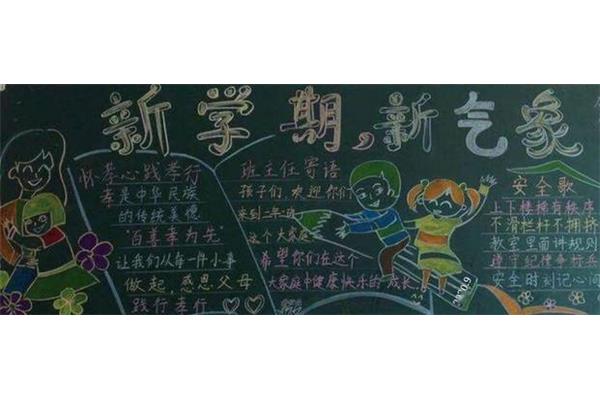 新学期,新气象
怀孝心践孝行
孝是中华民族
的传统美德
"百善孝为先"
让我们从每一件小事
做起,感恩父母
践行孝行
班主任寄语
孩子们 欢迎你们
来到二年班
这个大家庭
希望你们在这个
大家庭中健康快乐的成长
安全歌
上下楼梯有秩序
不滑栏杆不拥挤
教室里面讲规则
遵守纪律争标兵
安全时刻记心间